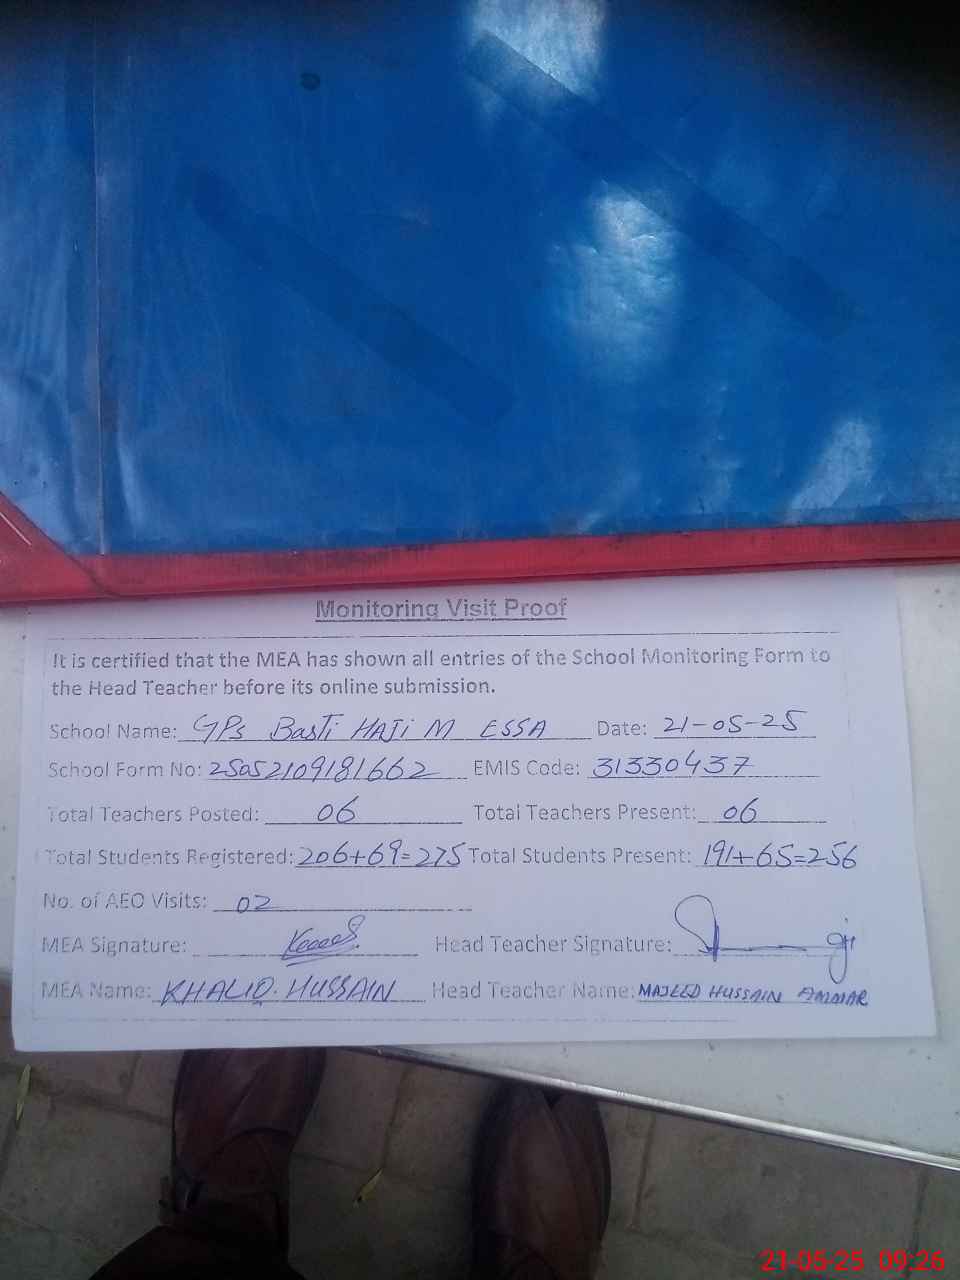 Monitoring Visit Proof
It is certified that the MEA has shown all entries of the School Monitoring Form to
the Head Teacher before its online submission.
School Name: GPS Basti HAJI M ESSA Date: 21-05-25
School Form No: 25052109181662 EMIS Code: 31330437
Total Teachers Posted: 06 Total Teachers Present: 06
Total Students Registered: 206+69=275 Total Students Present: 191+65=256
No. of AEO Visits: 02
MEA Signature: Head Teacher Signature:
MEA Name: KHALIQ. HUSSAIN Head Teacher Name: MAJEED HUSSAIN AMMAR
21-05-25 09:26